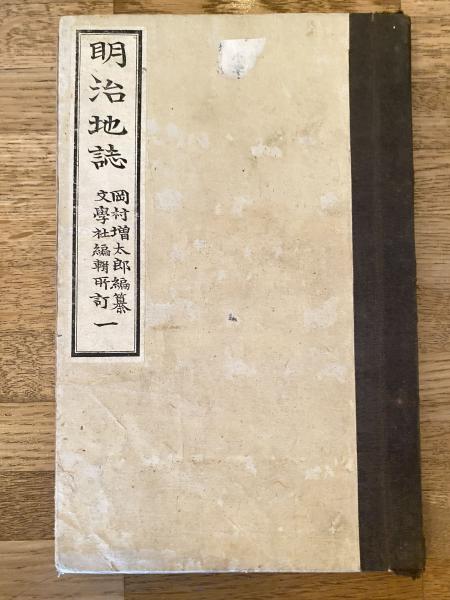 明治地誌
岡村増太郎編纂
文學社編輯所訂
一